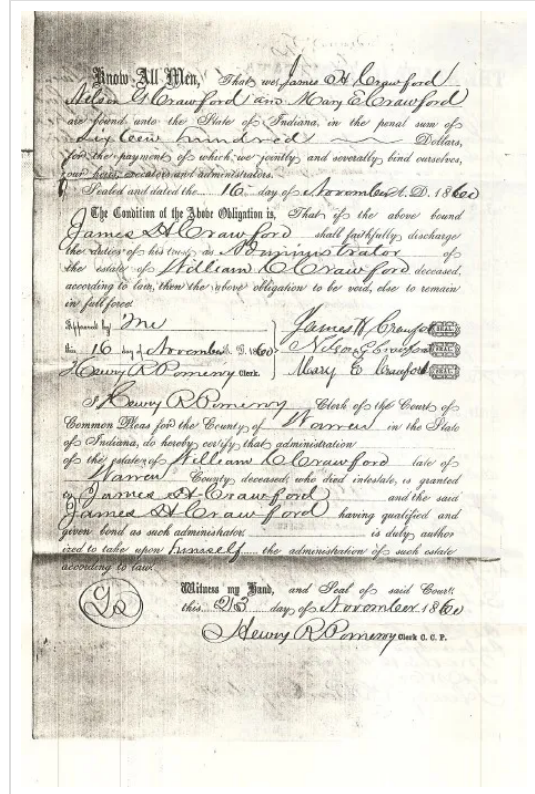 Know All Men, That we, James H Crawford
Nelson G Crawford and Mary E Crawford
are bound unto the State of Indiana, in the penal sum of
Sixteen hundred Dollars,
for the payment of which, we jointly and severally bind ourselves,
our heirs, executors and administrators.
Sealed and dated the 16 day of November A. D. 1860
The Condition of the Above Obligation is, That if the above bound
James H Crawford shall faithfully discharge
the duties of his trust as Administrator of
the estate of William C Crawford deceased,
according to law, then the above obligation to be void, else to remain
in full force.
Approved by me
this 16 day of November A. D. 1860
Henry R Pomeroy Clerk.
James H Crawford SEAL.
Nelson G Crawford SEAL.
Mary E Crawford SEAL.
I Henry R Pomeroy Clerk of the Court of
Common Pleas for the County of Warren in the State
of Indiana, do hereby certify that administration
of the estate of William C Crawford late of
Warren County deceased, who died intestate, is granted
to James H Crawford and the said
James H Crawford having qualified and
given bond as such administrator, is duly author
ized to take upon himself the administration of such estate
according to law.
Witness my Hand, and Seal of said Court,
this 23 day of November 1860
Henry R Pomeroy Clerk C. C. P.